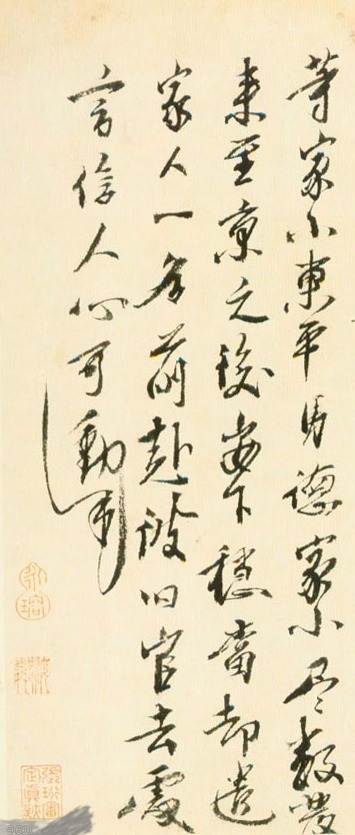 等家小東平馬德家小尽數發
来至京之後安下穩當却遣
家人一名前赴彼旧官去處
言信人心可動